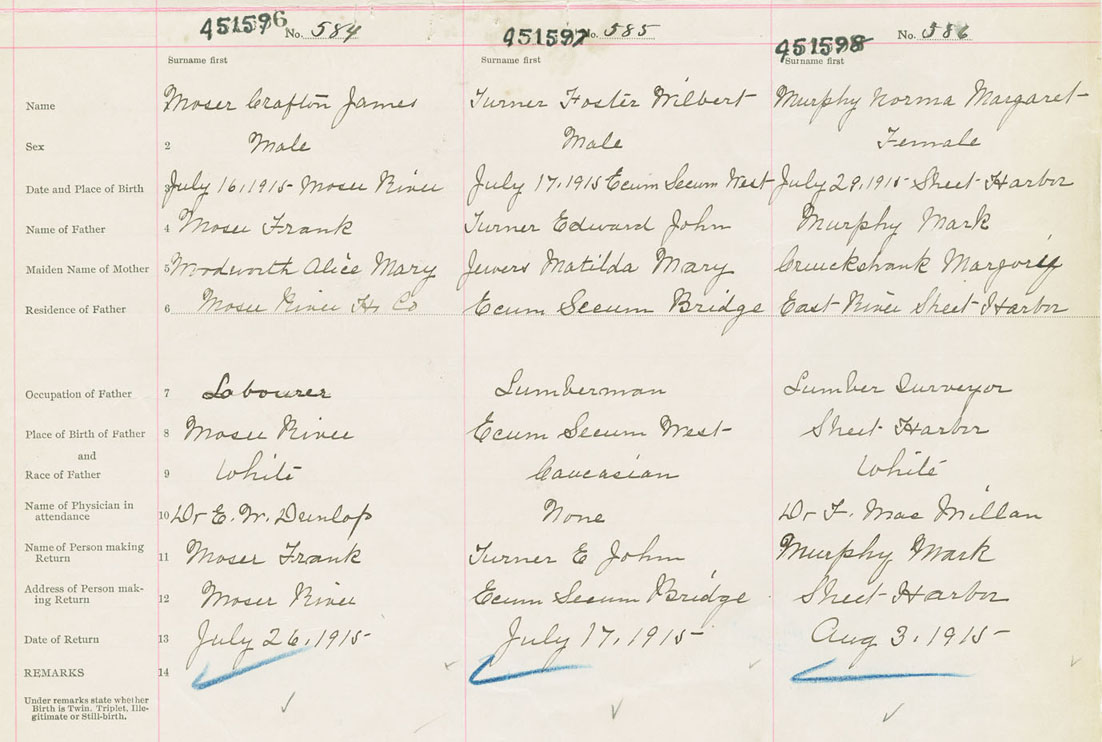 451596 No. 584 451597 No. 585 451598 No. 586
Surname first Surname first Surname first
Name Moser Crafton James Turner Foster Wilbert Murphy Norma Margaret
Sex 2 Male Male Female
Date and Place of Birth 3 July 16, 1915 Moser River July 17, 1915 Ecum Secum West July 29, 1915 Sheet Harbor
Name of Father 4 Moser Frank Turner Edward John Murphy Mark
Maiden Name of Mother 5 Woodworth Alice Mary Jewers Matilda Mary Cruickshank Margory
Residence of Father 6 Moser River Hx Co Ecum Secum Bridge East River Sheet Harbor
Occupation of Father 7 Labourer Lumberman Lumber Surveyor
Place of Birth of Father 8 Moser River Ecum Secum West Sheet Harbor
and
Race of Father 9 White Caucasian White
Name of Physician in
attendance 10 Dr E. W. Dunlop None Dr F. Mac Millan
Name of Person making
Return 11 Moser Frank Turner E John Murphy Mark
Address of Person mak-
ing Return 12 Moser River Ecum Secum Bridge Sheet Harbor
Date of Return 13 July 26, 1915 July 17, 1915 Aug 3, 1915
REMARKS 14
Under remarks state whether
Birth is Twin, Triplet, Ille-
gitimate or Still-birth.